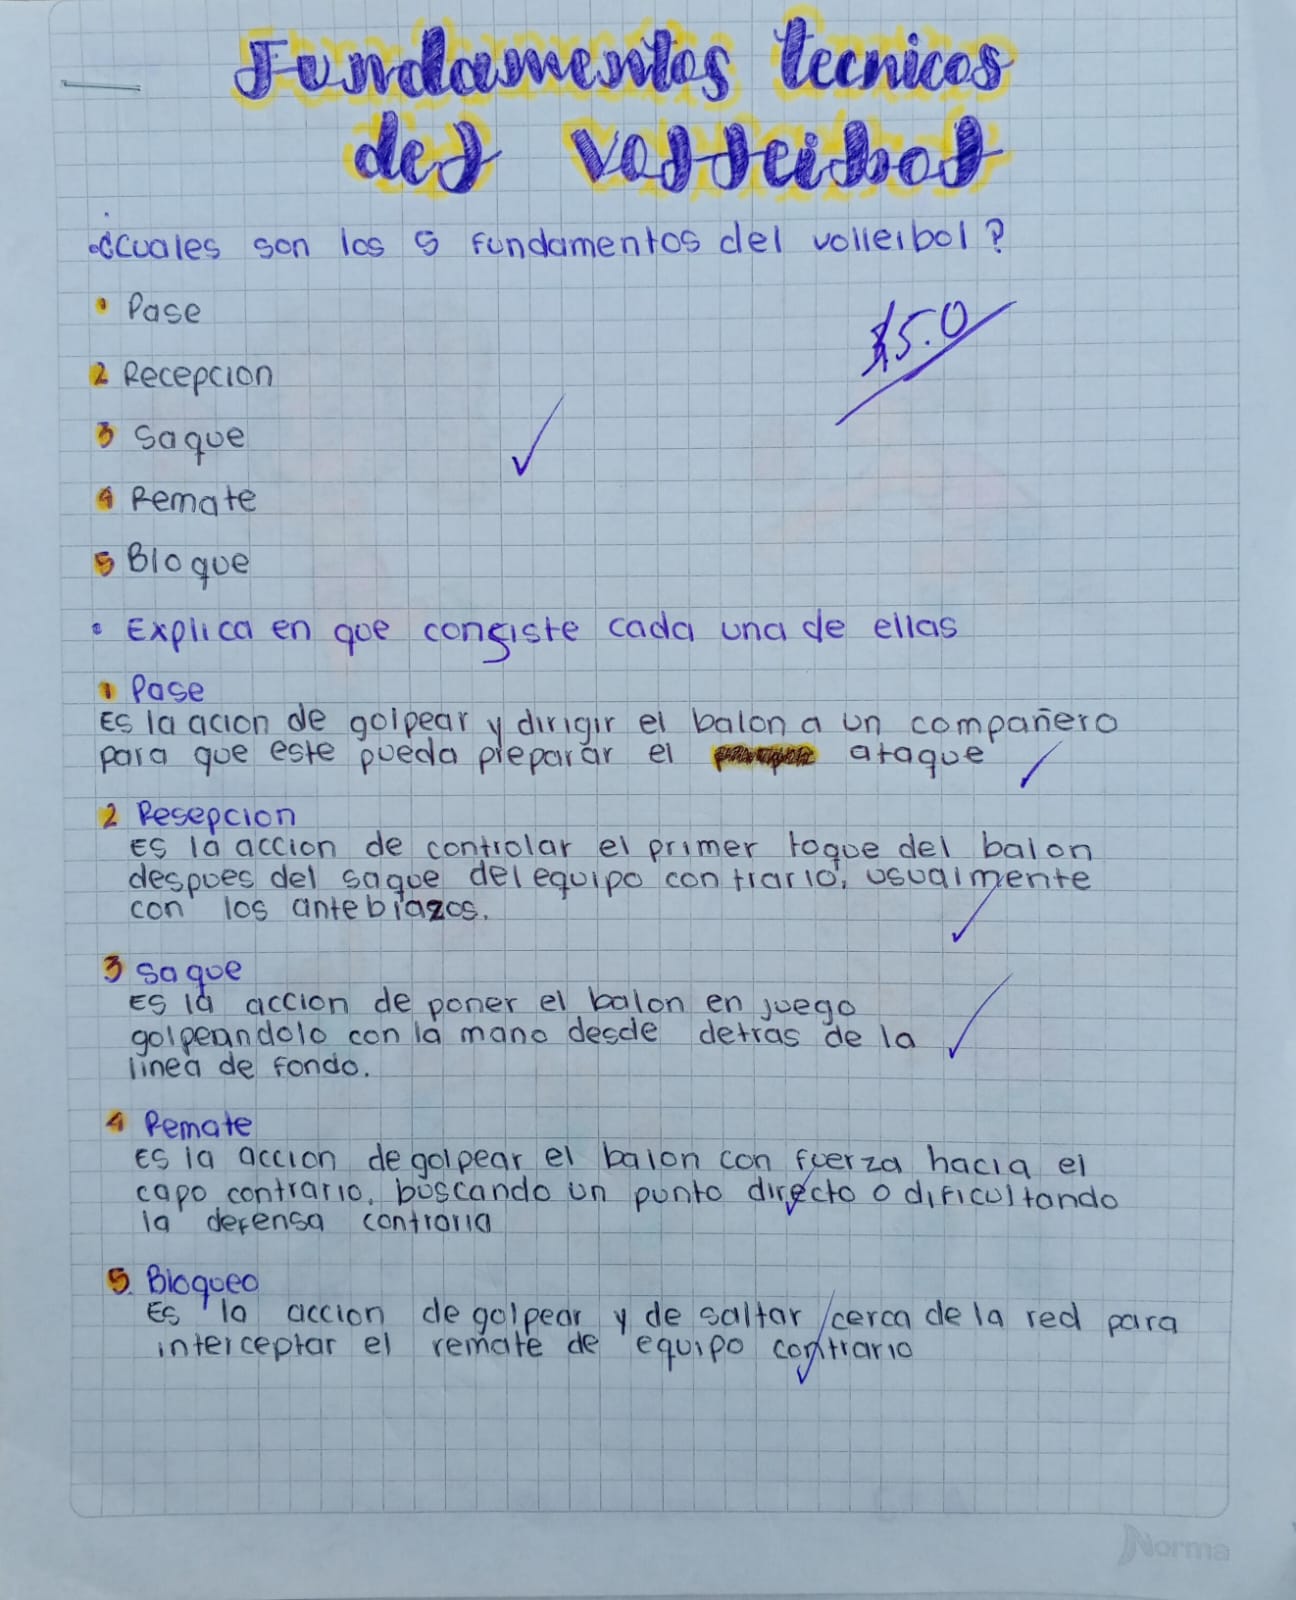 Fundamentos tecnicos
del Volleibol
¿Cuales son los 5 fundamentos del volleibol?
1 Pase
5.0
2 Recepcion
3 Saque
4 Remate
5 Bloque
• Explica en que consiste cada una de ellas
1 Pase
Es la acion de golpear y dirigir el balon a un compañero
para que este pueda preparar el ataque
2 Resepcion
Es la accion de controlar el primer toque del balon
despues del saque del equipo contrario, usualmente
con los antebrazos.
3 Saque
Es la accion de poner el balon en juego
golpeandolo con la mano desde detras de la
linea de fondo.
4 Remate
Es la accion de golpear el balon con fuerza hacia el
capo contrario, buscando un punto directo o dificultando
la defensa contraria
5. Bloqueo
Es la accion de golpear y de saltar cerca de la red para
interceptar el remate de equipo contrario
Norma